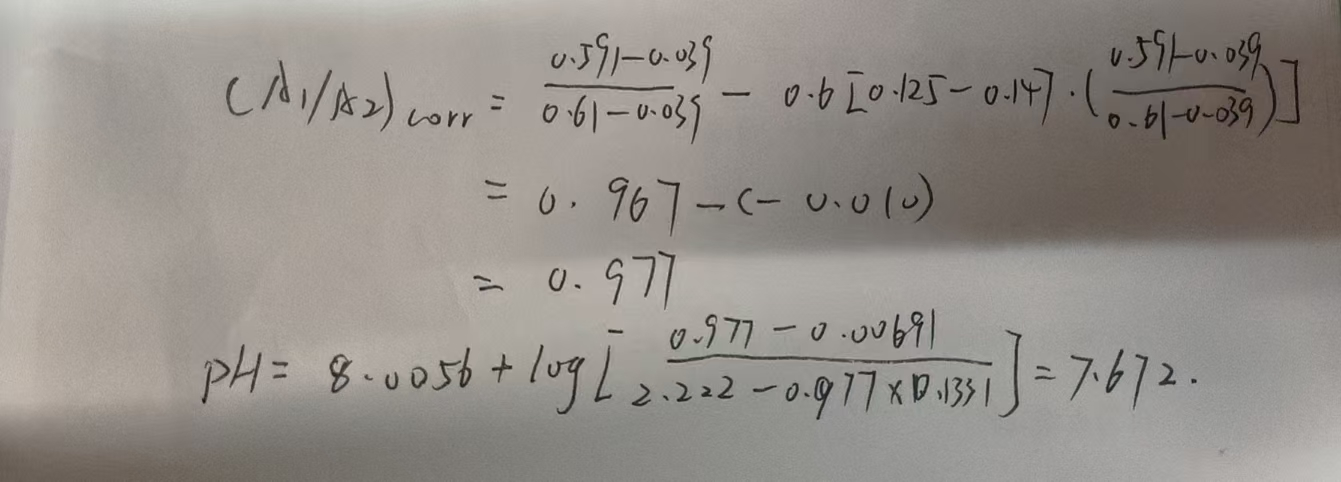 (A1/A2)corr = (0.591-0.039)/(0.61-0.039) - 0.6[0.125-0.147·((0.591-0.039)/(0.61-0.039))]
= 0.967-(-0.010)
= 0.977
pH= 8.0056+log[(0.977-0.00691)/(2.222-0.977×0.1331)]=7.672.